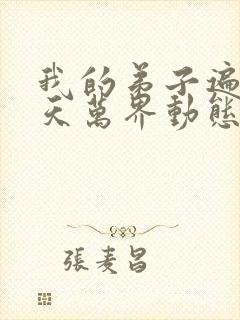 我的弟子遍
天萬界動態
張麦昌